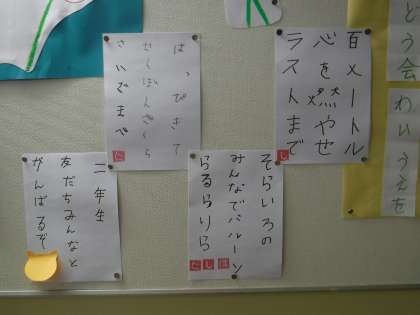 どう会 わいうえを
百メートル
心を燃やせ
ラストまで
し
はっぴきて
せんぼんざくら
さいごまで
そらいろの
みんなでバルーン
らるらりら
二年生
友だちみんなと
がんばるぞ